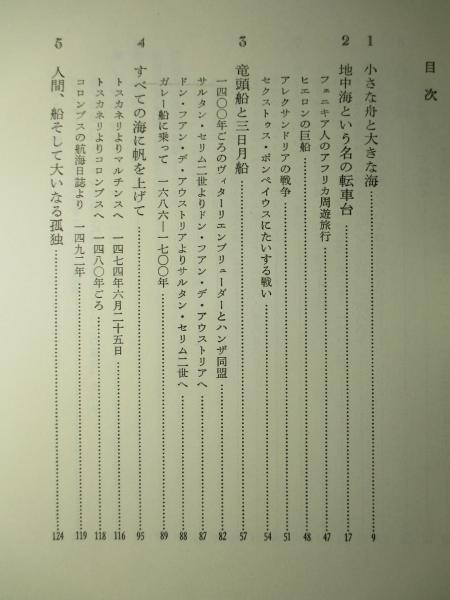 目次
1 小さな舟と大きな海……………9
2 地中海という名の転車台……………17
フェニキア人のアフリカ周遊旅行……………47
ヒエロンの巨船……………48
アレクサンドリアの戦争……………51
セクストゥス・ポンペイウスにたいする戦い……………54
3 竜頭船と三日月船……………57
一四〇〇年ごろのヴィターリエンブリューダーとハンザ同盟……………82
サルタン・セリム二世よりドン・フアン・デ・アウストリアへ……………87
ドン・フアン・デ・アウストリアよりサルタン・セリム二世へ……………88
ガレー船に乗って 一六八六―一七〇〇年……………89
4 すべての海に帆を上げて……………95
トスカネリよりマルチンスへ 一四七四年六月二十五日……………116
トスカネリよりコロンブスへ 一四八〇年ごろ……………118
コロンブスの航海日誌より 一四九二年……………119
5 人間、船そして大いなる孤独……………124